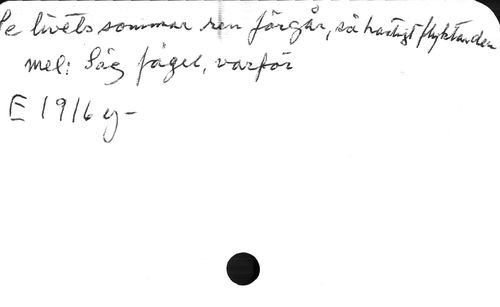 Se livets sommar ren förgår, så hastigt flyktande
mel: Säg fågel, varför
E 1916 y-